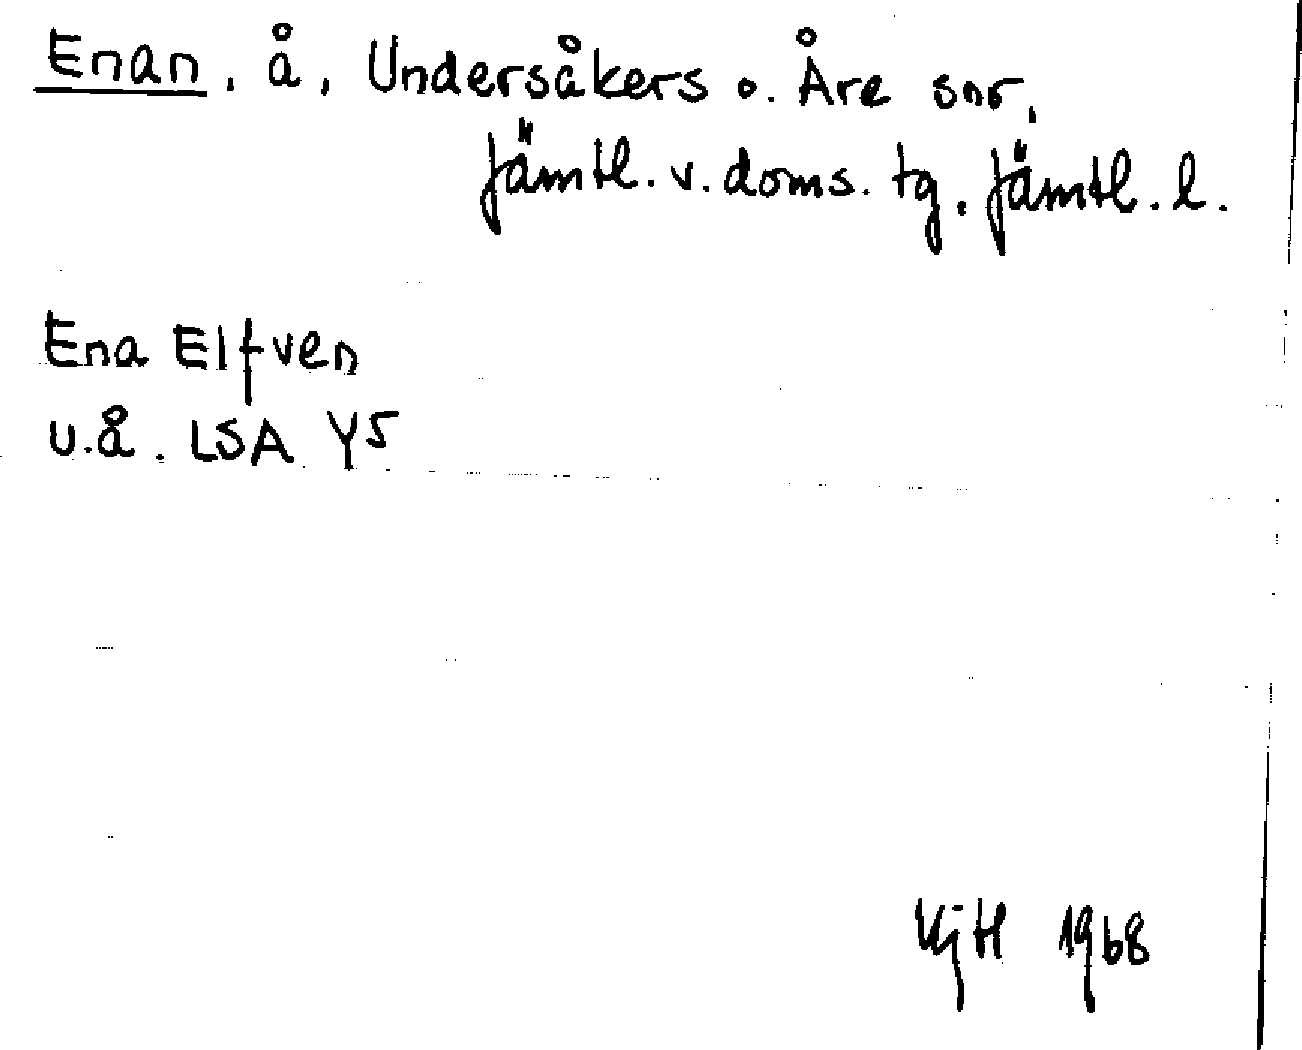 Enan, å, Undersåkers o. Åre snr,
Jämtl. v. doms. tg. Jämtl. l.
Ena Elfven
u.å. LSA Y5
KjH 1968